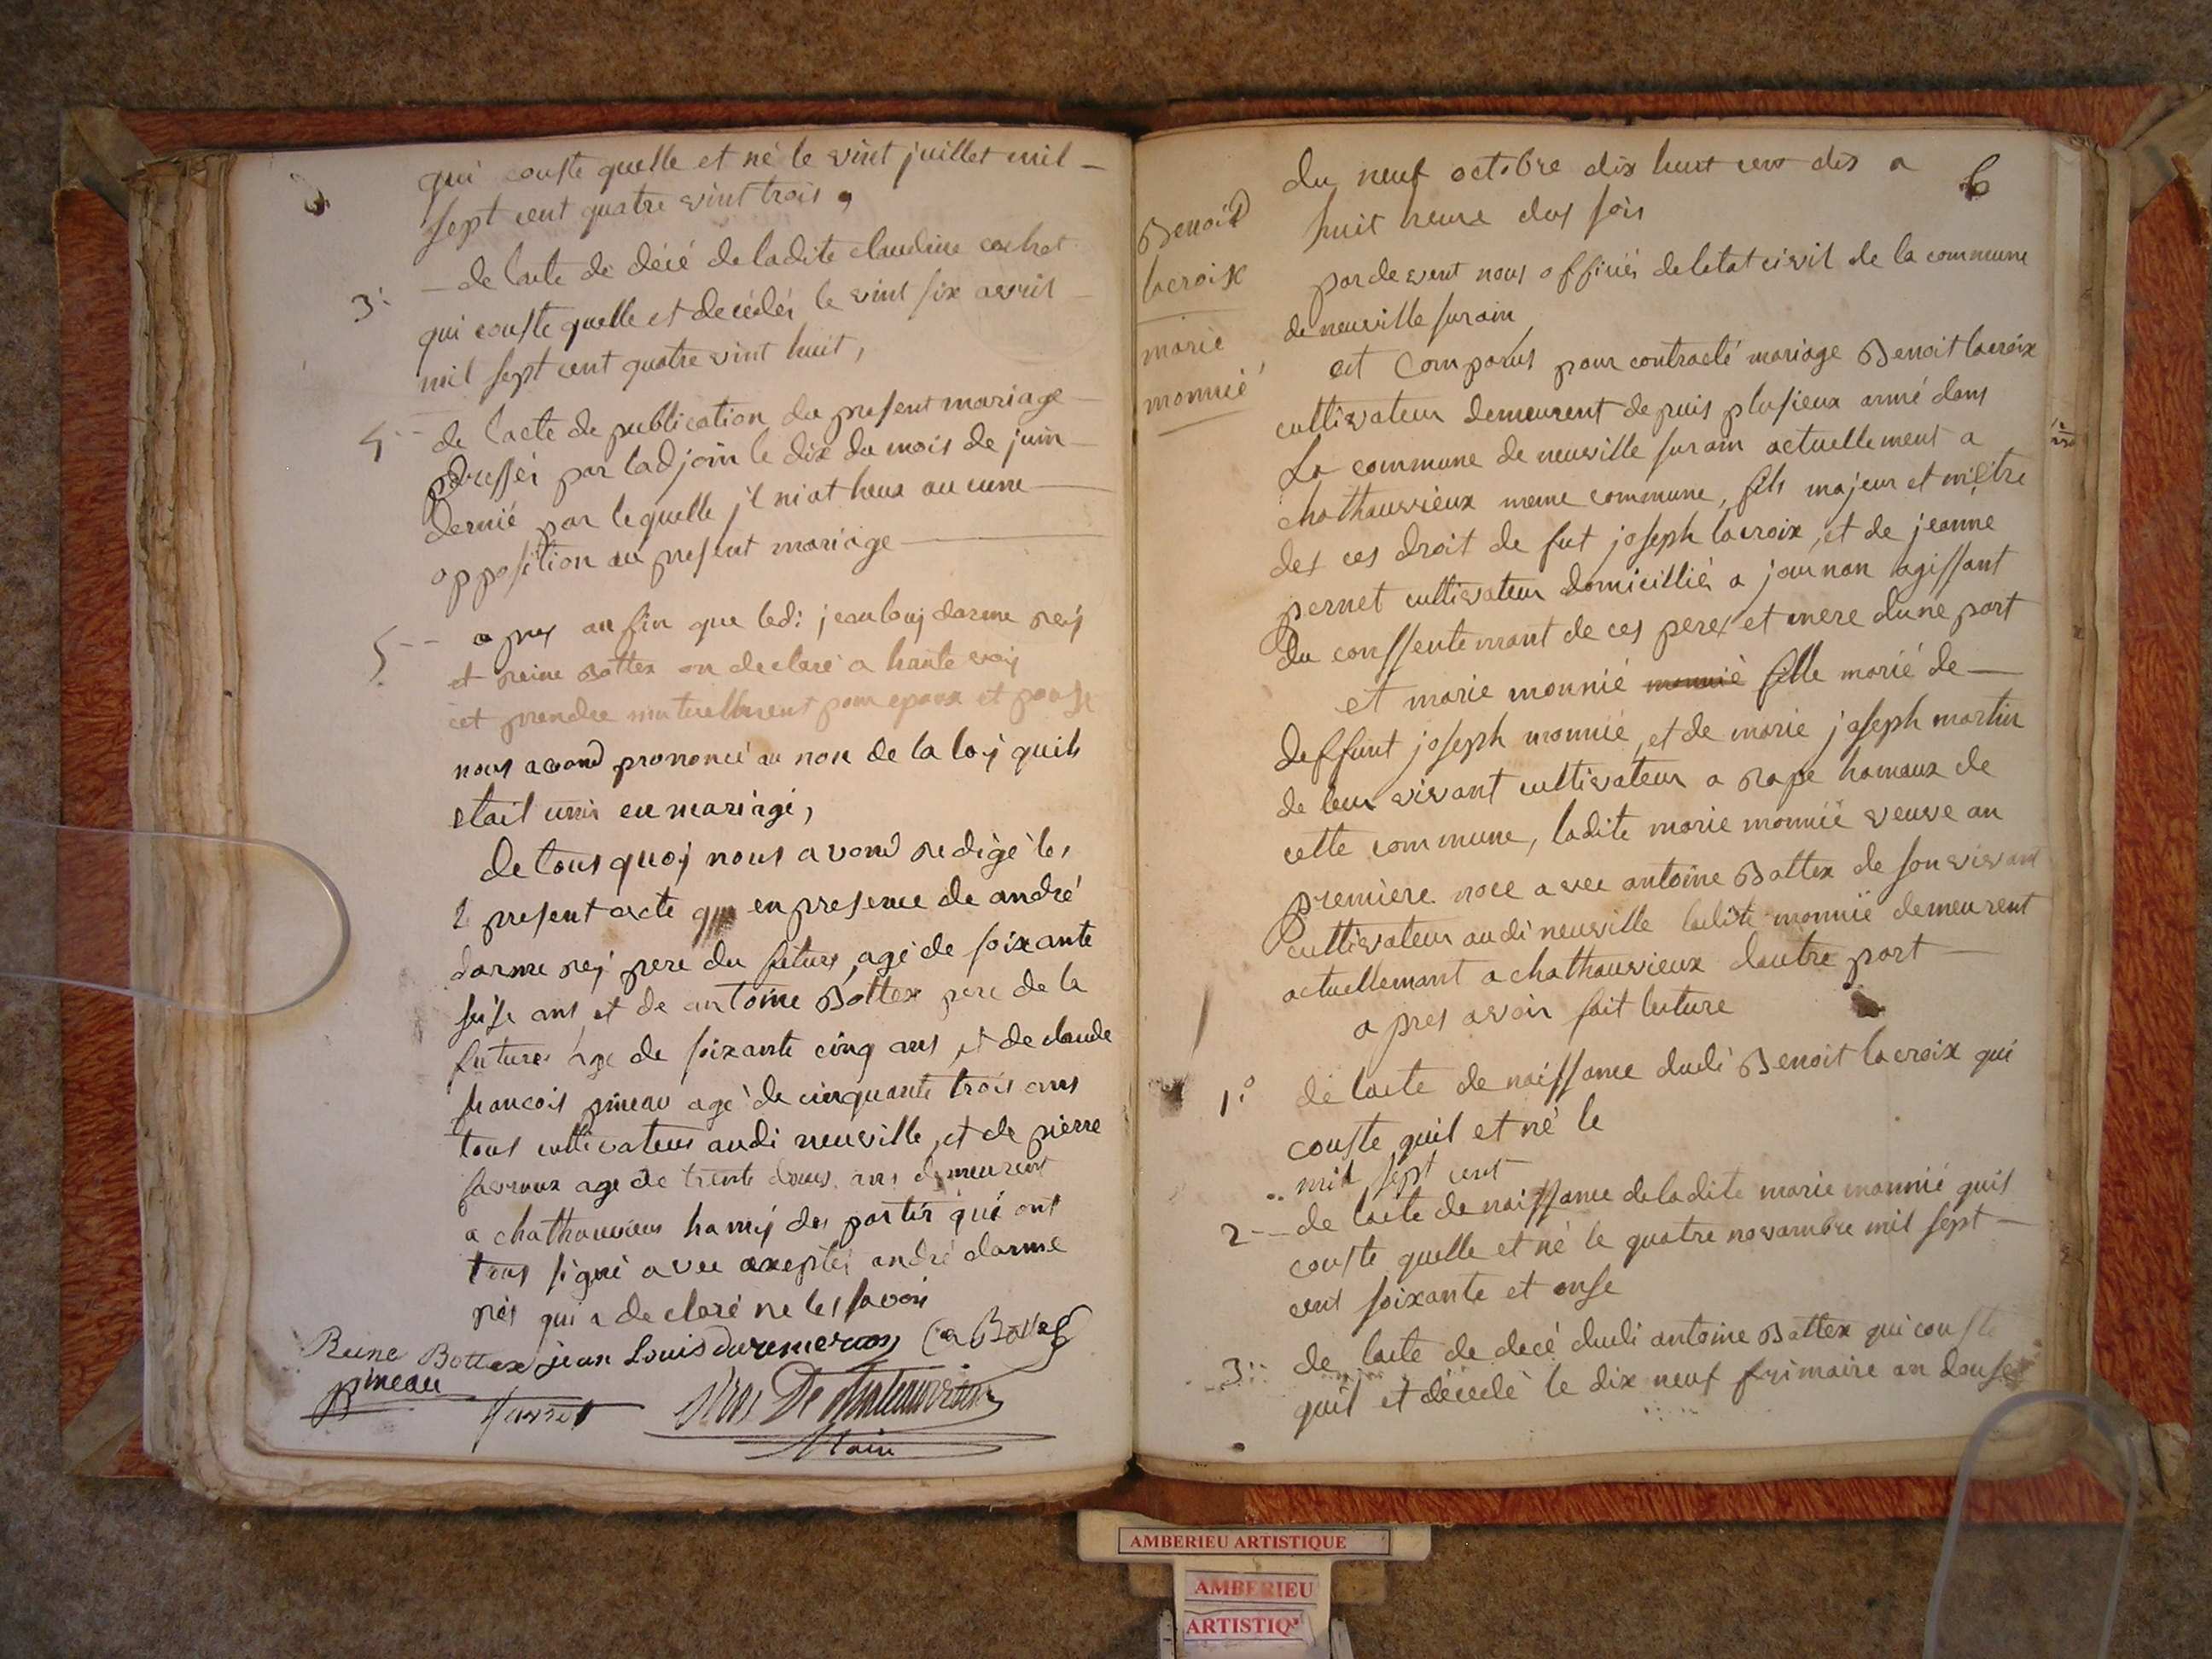 qui conste quelle et né le vint juillet mil
sept cent quatre vint trois,
3: de lacte de décé de ladite claudine cochet
qui conste quelle et decédéé le vint six avril
mil sept cent quatre vint huit,
4 de lacte de publication du present mariage
dressér par ladjoin le dix du mois de juin
dernié par lequelle jl ni at heux aucune
opposition au present mariage
5 a pres au fin que ledi jean louj darme rey
et reine Bottex on declaré a haute voij
cet prendre mutuellement pour epoux et pouse
nous avond prononcé au non de la loij quils
etait unis en mariage,
de tous quoij nous avond redigé les
present acte en presence de andré
darme reij pere du future agé de soixante
seise ans et de antoine Bottex pere de la
future age de soixante cinq ans et de claude
francois pineau agé de cinquante trois ans
tous cultivateur audi neuville et de pierre
age de trente ans demeurent
a chathauvieux hamij des partis qui ont
tous signé avec axepter andré darme
qui a declaré ne les savoir
Reine Bottex jean Louis
pineau
De
Main
6
Benoid
lacroix
marie
monnié
du neuf octobre dix huit cens dix a
huit heure du soir
par devent nous officiér de letat civil de la commune
de neuville surain
cet Comparus pour contracté mariage Benoit lacroix
cultivateur demeurent depuis plusieux anné dans
La commune de neuville surain actuellement a
chathauvieux meme commune, fils majeur et mêtre
des ces droit de fut joseph lacroix, et de jeanne
pernet cultivateur domicilliér a journan agissant
du conssentemant de ces peres et mere dune part
et marie monnié monnié fille marié de
deffunt joseph monnié, et de marie joseph martin
de leur vivant cultivateur a rape hamaux de
cette commune, ladite marie monnié veuve an
premiere noce avec antoine Bottex de son vivant
cultivateur audi neuville ladite monnié demeurent
actuellemant a chathauvieux dautre part
a pres avoir fait lecture
1° de lacte de naissance dudi Benoit lacroix qui
conste quil et né le
mil sept cent
2 de lacte de naissance de ladite marie monnié quil
conste quelle et né le quatre novambre mil sept
cent soixante et onse
3: de lacte de decé dudi antoine Bottex qui conste
quil et décedé le dix neuf frimaire an douse
AMBERIEU ARTISTIQUE
AMBERIEU
ARTISTIQ